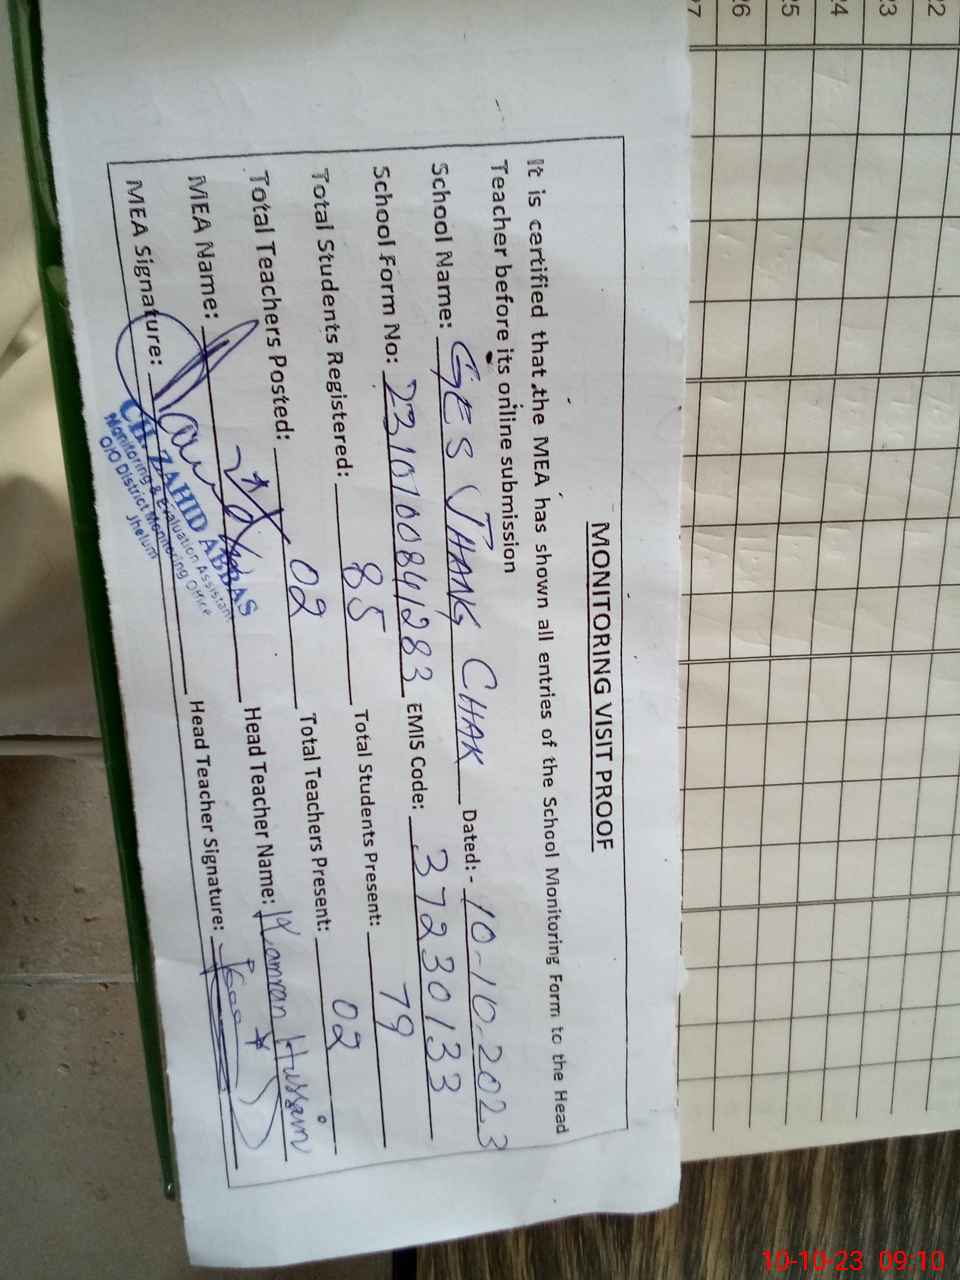 MONITORING VISIT PROOF
It is certified that the MEA has shown all entries of the School Monitoring Form to the Head
Teacher before its online submission
School Name: GES JHANG CHAK Dated:- 10-10-2023
School Form No: 23101００841283 EMIS Code: 37230133
Total Students Registered: 85 Total Students Present: 79
Total Teachers Posted: 02 Total Teachers Present: 02
MEA Name: Head Teacher Name: Kamran Hussain
MEA Signature: Head Teacher Signature:
CH. ZAHID ABBAS
Monitoring & Evaluation Assistant
O/O District Monitoring Office
Jhelum
22
23
24
25
26
27
10-10-23 09:10